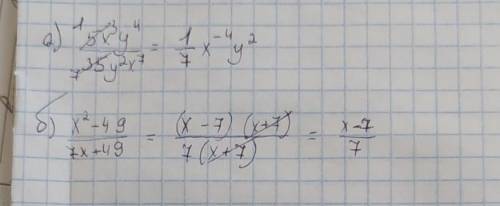 а) 5x³y⁴ / 35y²x⁷ = 1/7 x⁻⁴y²
б) x²-49 / 7x+49 = (x-7)(x+7) / 7(x+7) = x-7 / 7